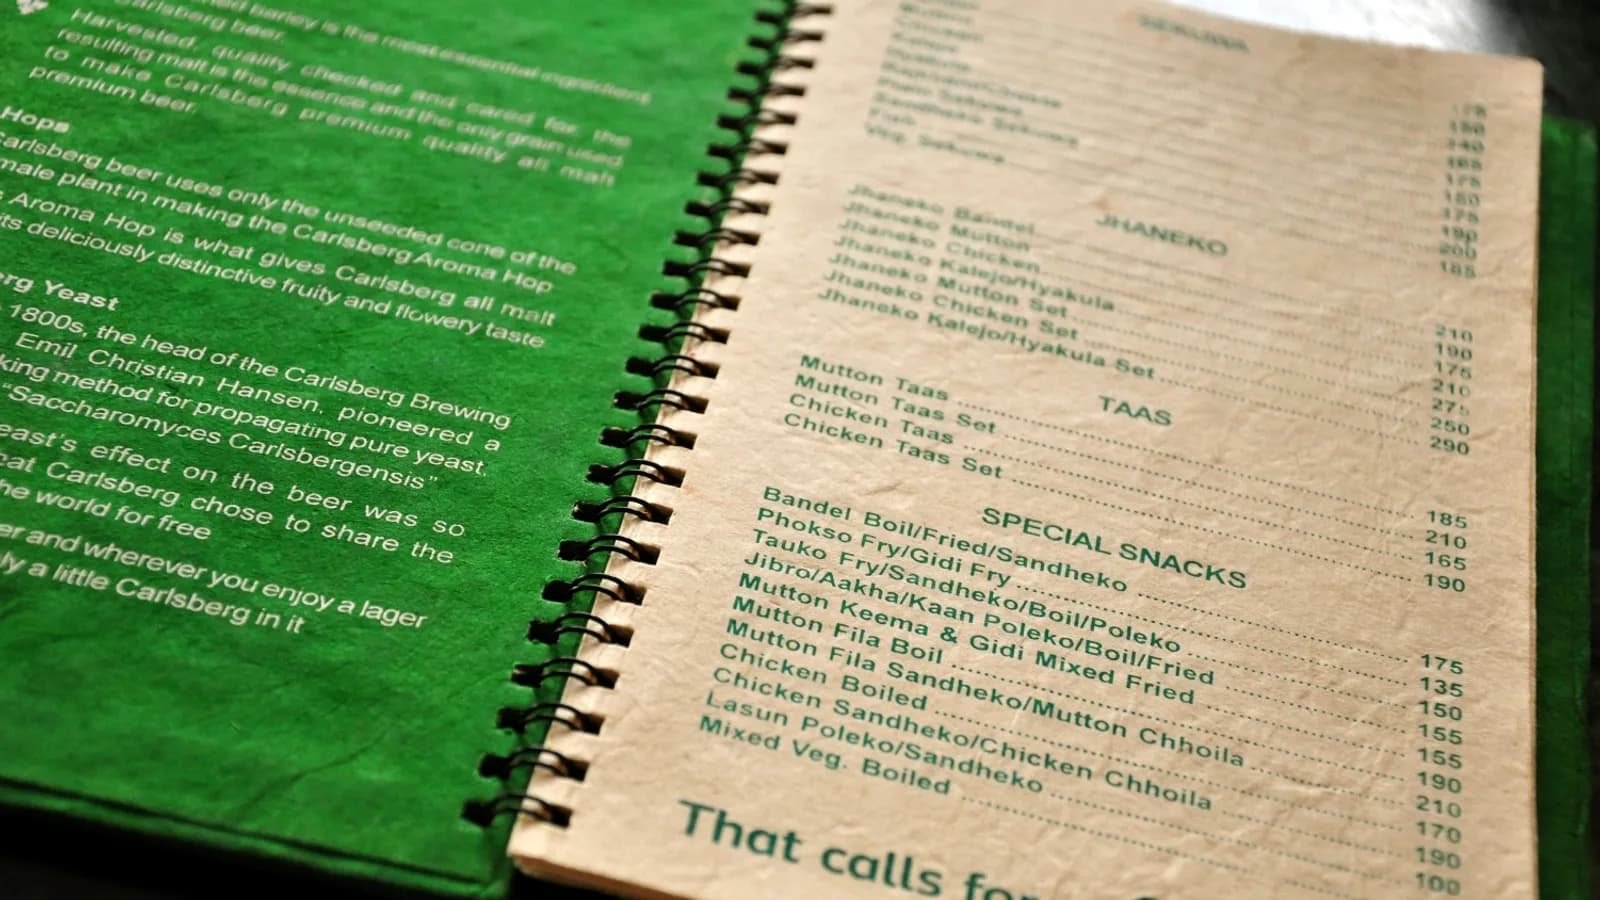 barley is the most essential ingredient
Carlsberg beer.
Harvested, quality checked and cared for, the
resulting malt is the essence and the only grain used
to make Carlsberg premium quality all malt
premium beer.
Hops
Carlsberg beer uses only the unseeded cone of the
male plant in making the Carlsberg Aroma Hop
Aroma Hop is what gives Carlsberg all malt
its deliciously distinctive fruity and flowery taste
Yeast
1800s, the head of the Carlsberg Brewing
Emil Christian Hansen, pioneered a
method for propagating pure yeast,
"Saccharomyces Carlsbergensis"
effect on the beer was so
Carlsberg chose to share the
the world for free
and wherever you enjoy a lager
a little Carlsberg in it
SEKUWA
Plain Sekuwa
Sandheko Sekuwa
Fish
Veg. Sekuwa
175
190
200
185
JHANEKO
Jhaneko Bandel 210
Jhaneko Mutton 190
Jhaneko Chicken 175
Jhaneko Kalejo/Hyakula 210
Jhaneko Mutton Set 275
Jhaneko Chicken Set 250
Jhaneko Kalejo/Hyakula Set 290
TAAS
Mutton Taas 185
Mutton Taas Set 210
Chicken Taas 165
Chicken Taas Set 190
SPECIAL SNACKS
Bandel Boil/Fried/Sandheko 175
Phokso Fry/Gidi Fry 135
Tauko Fry/Sandheko/Boil/Poleko 150
Jibro/Aakha/Kaan Poleko/Boil/Fried 155
Mutton Keema & Gidi Mixed Fried 155
Mutton Fila Boil 190
Mutton Fila Sandheko/Mutton Chhoila 210
Chicken Boiled 170
Chicken Sandheko/Chicken Chhoila 190
Lasun Poleko/Sandheko 100
Mixed Veg. Boiled
That calls for